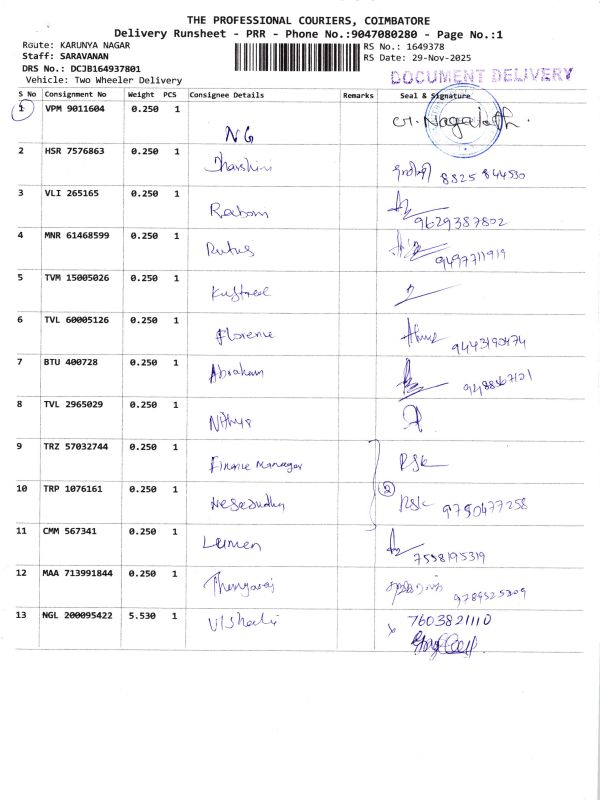 THE PROFESSIONAL COURIERS, COIMBATORE
Delivery Runsheet - PRR - Phone No.:9047080280 - Page No.:1
Route: KARUNYA NAGAR
RS No.: 1649378
Staff: SARAVANAN
RS Date: 29-Nov-2025
DRS No.: DCJB164937801
Vehicle: Two Wheeler Delivery
DOCUMENT DELIVERY
S No Consignment No Weight PCS Consignee Details Remarks Seal & Signature
1 VPM 9011604 0.250 1
NG
2 HSR 7576863 0.250 1
Dharshini 8825 844530
3 VLI 265165 0.250 1
9629387802
4 MNR 61468599 0.250 1
Rufus 9497711919
5 TVM 15005026 0.250 1
6 TVL 60005126 0.250 1
Florence 9443190474
7 BTU 400728 0.250 1
Abraham
8 TVL 2965029 0.250 1
Nithya
9 TRZ 57032744 0.250 1
Finance Manager RSK
10 TRP 1076161 0.250 1
2 RSK 9750477258
11 CMM 567341 0.250 1
Lumen 7598195319
12 MAA 713991844 0.250 1
Thangaraj
13 NGL 200095422 5.530 1
Vishali 7603821110